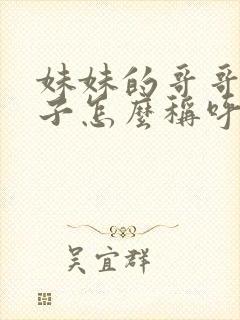 妹妹的哥哥
子怎麼稱呼
吴宜群